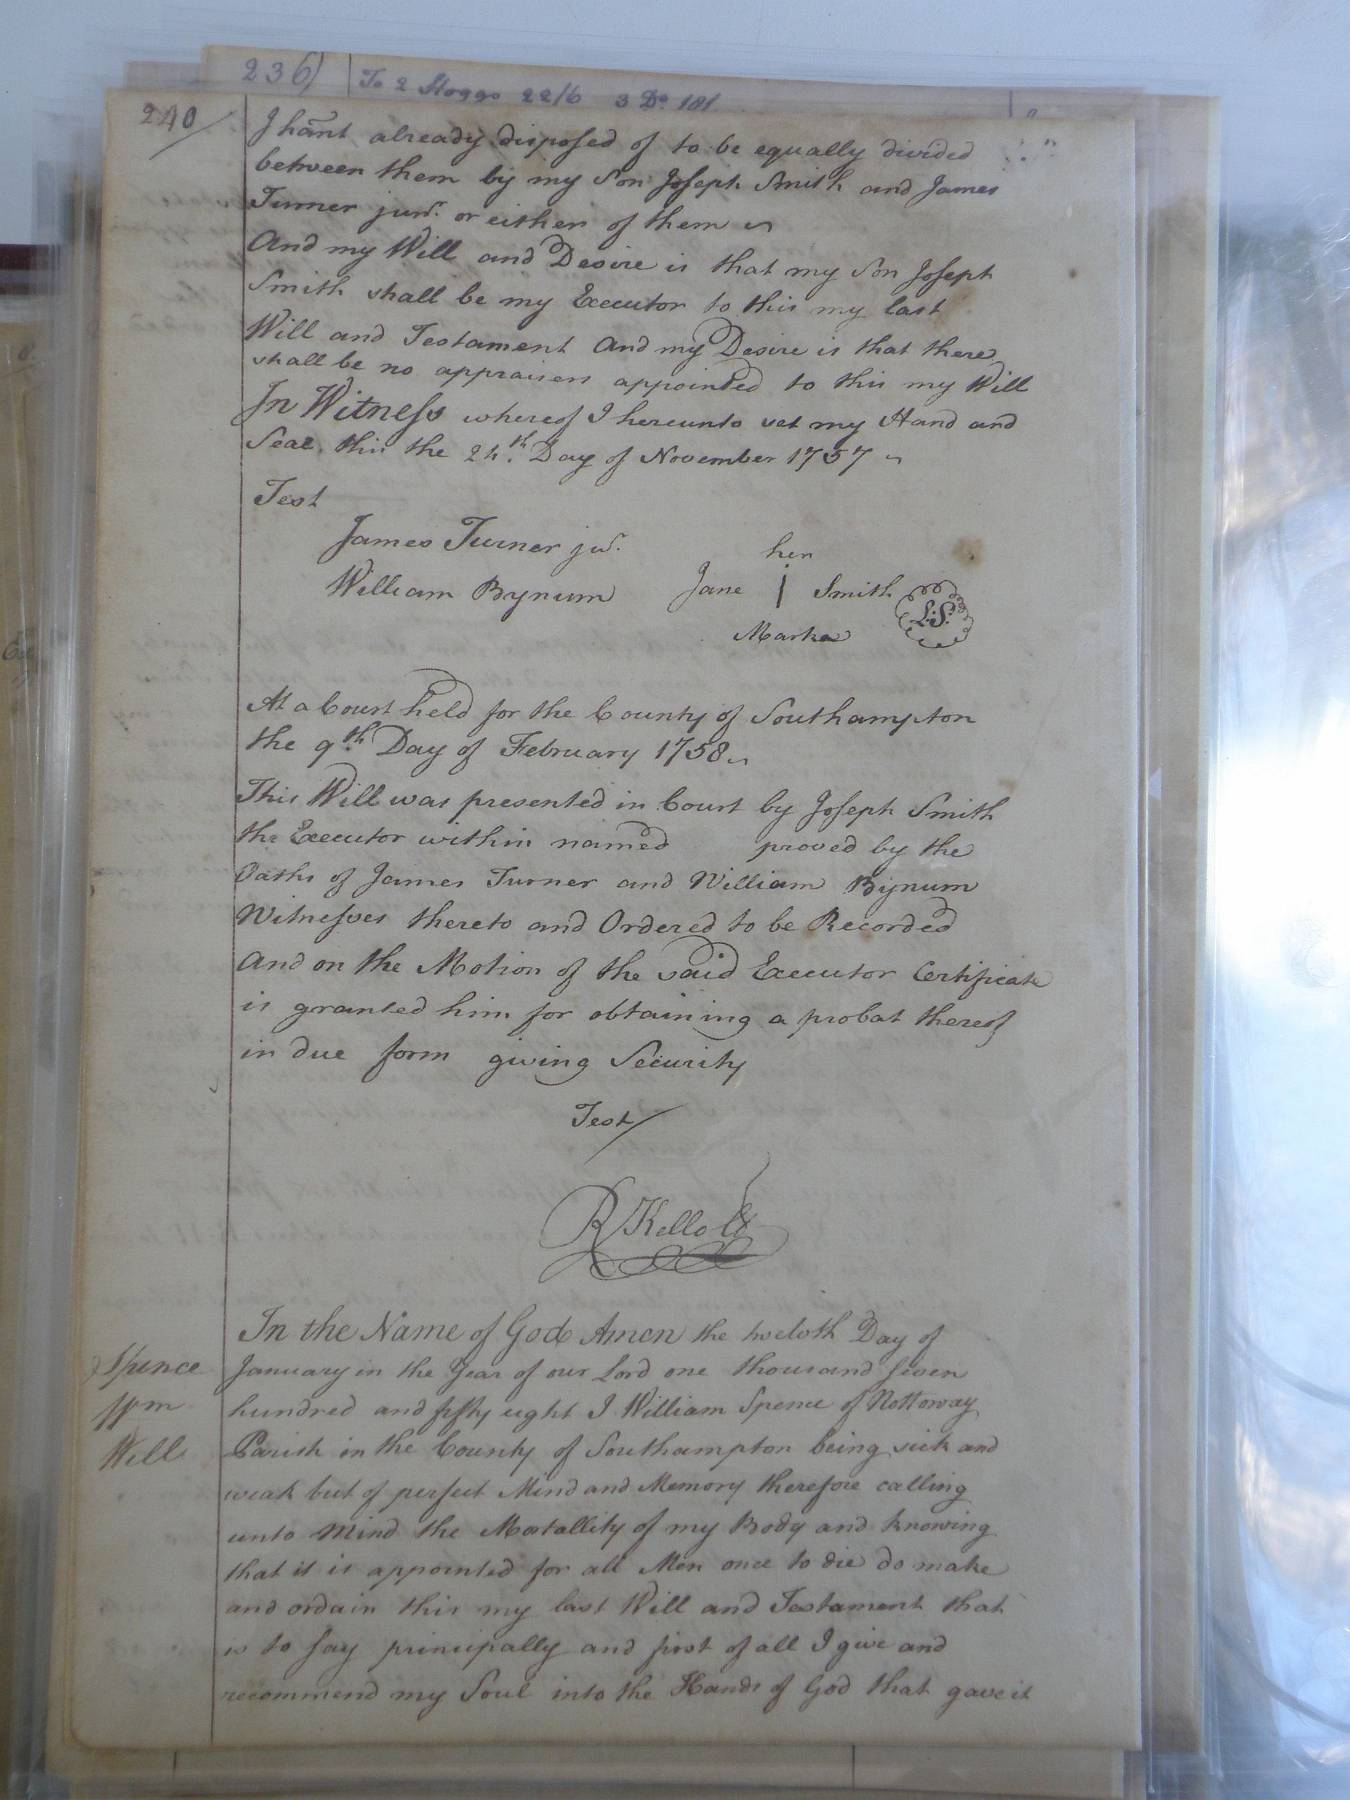 236)
To 2 Hoggs 22/6 3 Do. 18/
240
I ha'nt already disposed of to be equally divided
between them by my Son Joseph Smith and James
Turner junr. or either of them
And my Will and Desire is that my Son Joseph
Smith shall be my Executor to this my last
Will and Testament And my Desire is that there
shall be no appraisers appointed to this my Will
In Witness whereof I hereunto set my Hand and
Seal this the 24th. Day of November 1757
Test
James Turner jur.
her
William Bynum Jane | Smith L:S:
Marke
At a Court held for the County of Southampton
the 9th. Day of February 1758
This Will was presented in Court by Joseph Smith
the Executor within named proved by the
Oaths of James Turner and William Bynum
Witnesses thereto and Ordered to be Recorded
And on the Motion of the said Executor Certificate
is granted him for obtaining a probat thereof
in due form giving Security
Test/
R Kello Cl
In the Name of God Amen the twelvth Day of
Spence
January in the Year of our Lord one thousand seven
Wm
hundred and fifty eight I William Spence of Nottoway
Will
Parish in the County of Southampton being sick and
weak but of perfect Mind and Memory therefore calling
unto Mind the Mortallity of my Body and knowing
that it is appointed for all Men once to die do make
and ordain this my last Will and Testament that
is to say principally and first of all I give and
recommend my Soul into the Hands of God that gave it